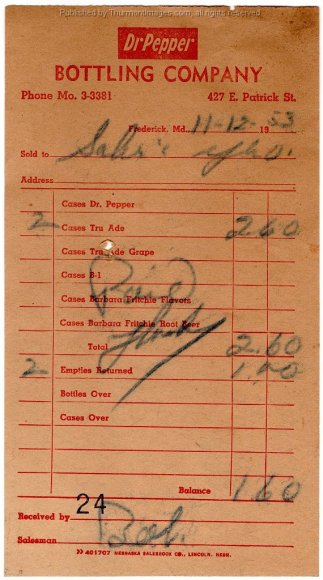 Published by Thurmontimages.com, all rights reserved
Dr Pepper
BOTTLING COMPANY
Phone Mo. 3-3381 427 E. Patrick St.
Frederick, Md. 11-12- 1953
Sold to
Address
Cases Dr. Pepper
2 Cases Tru Ade 2 60
Cases Tru Ade Grape
Cases B-1
Paid
Cases Barbara Fritchie Flavors
Cases Barbara Fritchie Root Beer
Total 2.60
2 Empties Returned 1.00
Bottles Over
Cases Over
Balance 1 60
Received by 24
Salesman Bob.
401707 NEBRASKA SALESBOOK CO., LINCOLN, NEBR.